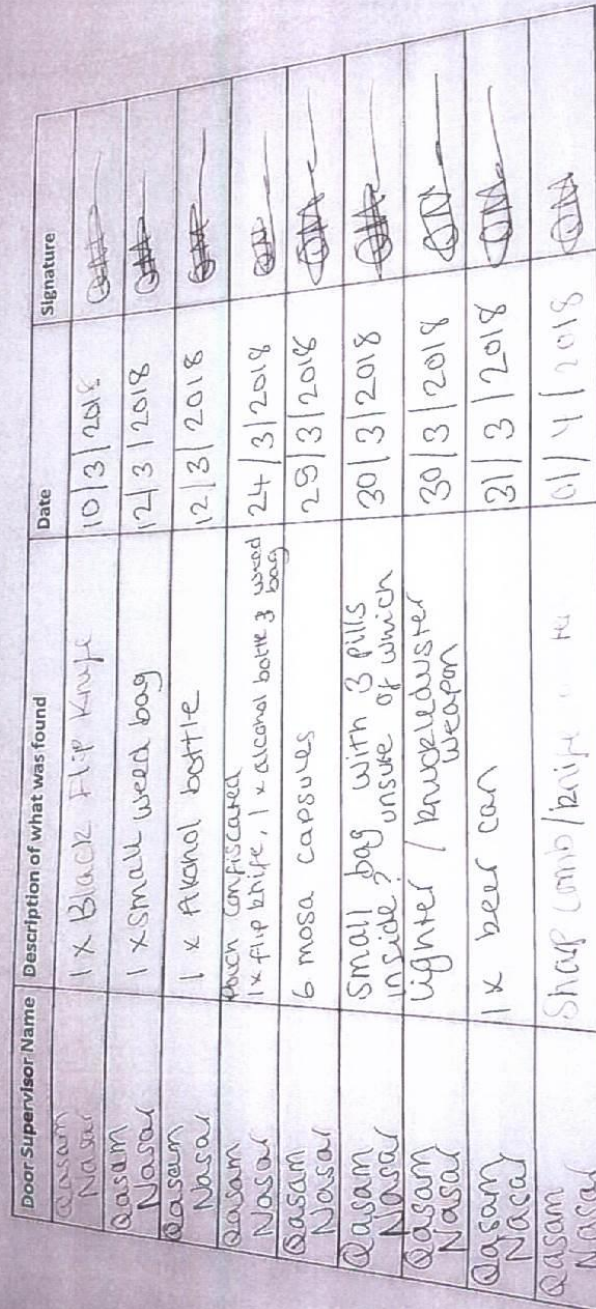 Door Supervisor Name Description of what was found Date Signature
Qasam Nasar 1 x Black Flip Knife 10/3/2018
Qasam Nasar 1 x small weed bag 12/3/2018
Qasam Nasar 1 x Alcohol bottle 12/3/2018
Qasam Nasar Pouch confiscated
1 x flip knife, 1 x alcohol bottle 3 weed bag 24/3/2018
Qasam Nasar 6 mosa capsules 29/3/2018
Qasam Nasar Small bag with 3 pills
inside? unsure of which 30/3/2018
Qasam Nasar lighter / knuckleduster
weapon 30/3/2018
Qasam Nasar 1x beer can 31/3/2018
Qasam Nasar Sharp comb/knife 01/4/2018